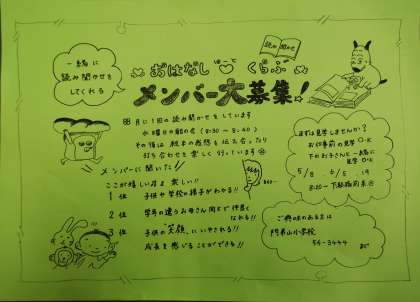 一緒に
読み聞かせを
してくれる
読み聞かせ
おはなし はーと くらぶ
メンバー大募集!
月に1回の読み聞かせをしています
水曜日の朝の会(8:30~8:40)
その後は 絵本の感想を伝え合ったり
打ち合わせを楽しく行っています
メンバーに聞いた!
ここが嬉しい♪楽しい!!
1位 子供や学校の様子がわかる!!
2位 学年の違うお母さん同士で仲良く
なれる!!
3位 子供の"笑顔"にいやされる!!
成長を感じることができる!!
まずは見学しませんか?
お仕事前の見学O・K
下のお子さんと一緒に
見学O・K
5/8 6/5 .19
8:20~下駄箱前集合
ご興味のある方は
小学校
54-3444 まで